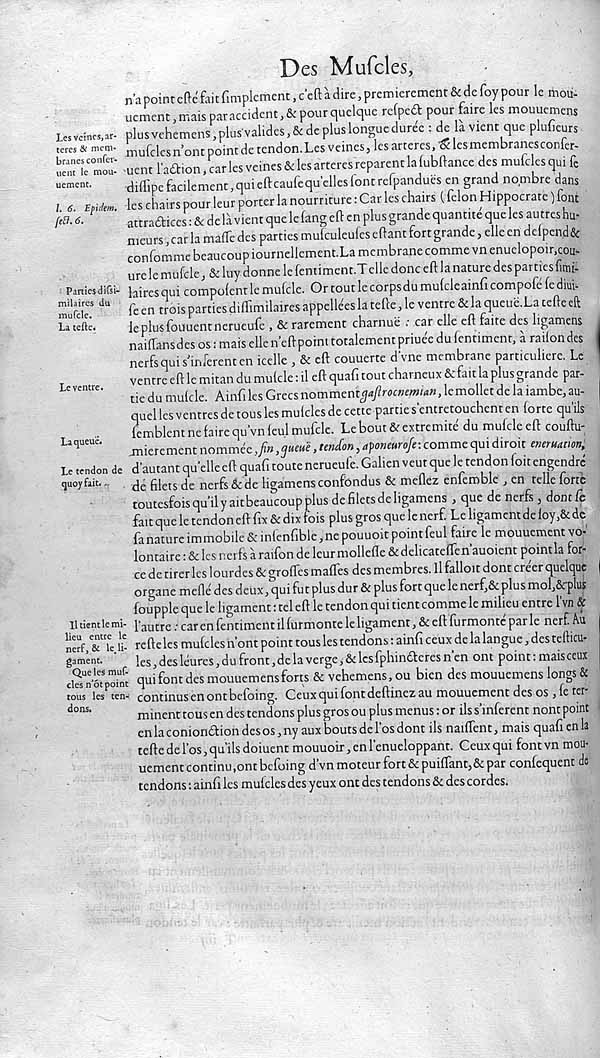 Des Muſcles,
n'a point eſté fait ſimplement, c'eſt à dire, premierement & de ſoy pour le mou-
uement, mais par accident, & pour quelque reſpect pour faire les mouuemens
plus vehemens, plus valides, & de plus longue durée : de là vient que pluſieurs
muſcles n'ont point de tendon. Les veines, les arteres, & les membranes conſer-
uent l'action, car les veines & les arteres reparent la ſubſtance des muſcles qui ſe
diſſipe facilement, qui eſt cauſe qu'elles ſont reſpanduës en grand nombre dans
les chairs pour leur porter la nourriture : Car les chairs (ſelon Hippocrate) ſont
attractices : & de là vient que le ſang eſt en plus grande quantité que les autres hu-
meurs, car la maſſe des parties muſculeuſes eſtant fort grande, elle en deſpend &
conſomme beaucoup iournellement. La membrane comme vn enuelopoir, cou-
ure le muſcle, & luy donne le ſentiment. Telle donc eſt la nature des parties ſimi-
laires qui compoſent le muſcle. Or tout le corps du muſcle ainſi compoſé ſe diui-
ſe en trois parties diſſimilaires appellées la teſte, le ventre & la queuë. La teſte eſt
le plus ſouuent nerueuſe, & rarement charnuë : car elle eſt faite des ligamens
naiſſans des os : mais elle n'eſt point totalement priuée du ſentiment, à raiſon des
nerfs qui s'inſerent en icelle, & eſt couuerte d'vne membrane particuliere. Le
ventre eſt le mitan du muſcle : il eſt quaſi tout charneux & fait la plus grande par-
tie du muſcle. Ainſi les Grecs nomment gaſtrocnemian, le mollet de la iambe, au-
quel les ventres de tous les muſcles de cette partie s'entretouchent en ſorte qu'ils
ſemblent ne faire qu'vn ſeul muſcle. Le bout & extremité du muſcle eſt couſtu-
mierement nommée, fin, queuë, tendon, aponeuroſe : comme qui diroit eneruation,
d'autant qu'elle eſt quaſi toute nerueuſe. Galien veut que le tendon ſoit engendré
de filets de nerfs & de ligamens confondus & meſlez enſemble, en telle ſorte
toutesfois qu'il y ait beaucoup plus de filets de ligamens, que de nerfs, dont ſe
fait que le tendon eſt ſix & dix fois plus gros que le nerf. Le ligament de ſoy, & de
ſa nature immobile & inſenſible, ne pouuoit point ſeul faire le mouuement vo-
lontaire : & les nerfs à raiſon de leur molleſſe & delicateſſe n'auoient point la for-
ce de tirer les lourdes & groſſes maſſes des membres. Il falloit donc créer quelque
organe meſlé des deux, qui fut plus dur & plus fort que le nerf, & plus mol, & plus
ſoupple que le ligament : tel eſt le tendon qui tient comme le milieu entre l'vn &
l'autre : car en ſentiment il ſurmonte le ligament, & eſt ſurmonté par le nerf. Au
reſte les muſcles n'ont point tous les tendons : ainſi ceux de la langue, des teſticu-
les, des léures, du front, de la verge, & les ſphincteres n'en ont point : mais ceux
qui font des mouuemens forts & vehemens, ou bien des mouuemens longs &
continus en ont beſoing. Ceux qui ſont deſtinez au mouuement des os, ſe ter-
minent tous en des tendons plus gros ou plus menus : or ils s'inſerent non point
en la conionction des os, ny aux bouts de l'os dont ils naiſſent, mais quaſi en la
teſte de l'os, qu'ils doiuent mouuoir, en l'enueloppant. Ceux qui font vn mou-
uement continu, ont beſoing d'vn moteur fort & puiſſant, & par conſequent de
tendons : ainſi les muſcles des yeux ont des tendons & des cordes.
Les veines, ar-
teres & mem-
branes conſer-
uent le mou-
uement.
l. 6. Epidem.
ſect. 6.
Parties diſſi-
milaires du
muſcle.
La teſte.
Le ventre.
La queuë.
Le tendon de
quoy fait.
Il tient le mi-
lieu entre le
nerf, & le li-
gament.
Que les muſ-
cles n'ōt point
tous les ten-
dons.